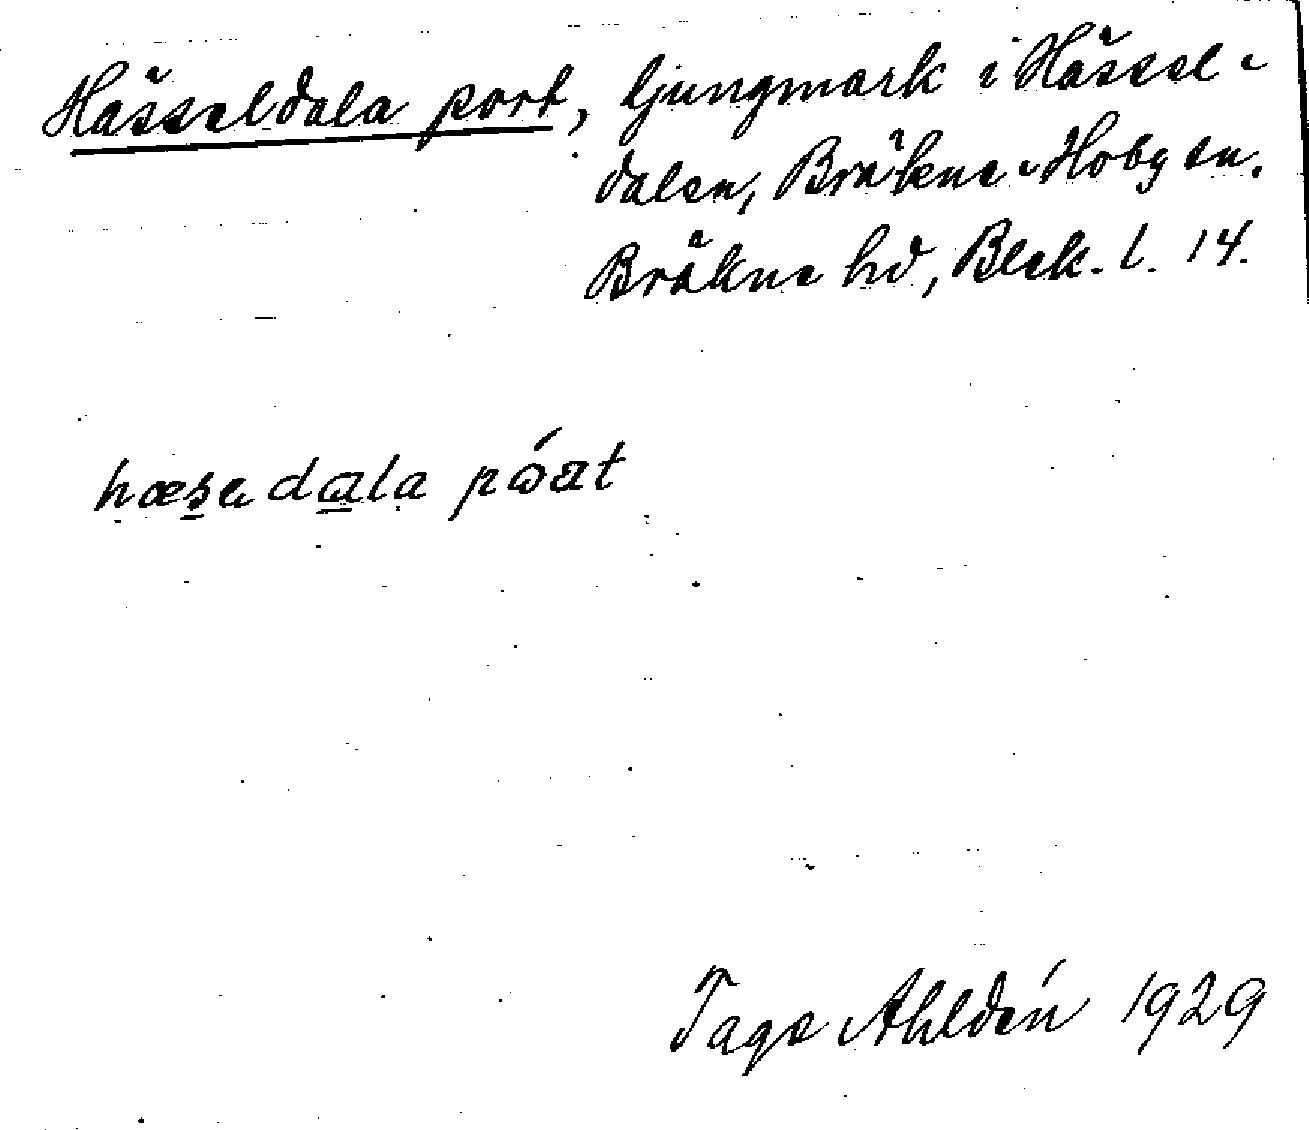 Hässeldala port, ljungmark i Hässel-
dalen, Bräkne-Hoby sn.
Bräkne hd, Blek. l. 14.
hæsadala póat
Tage Ahldén 1929